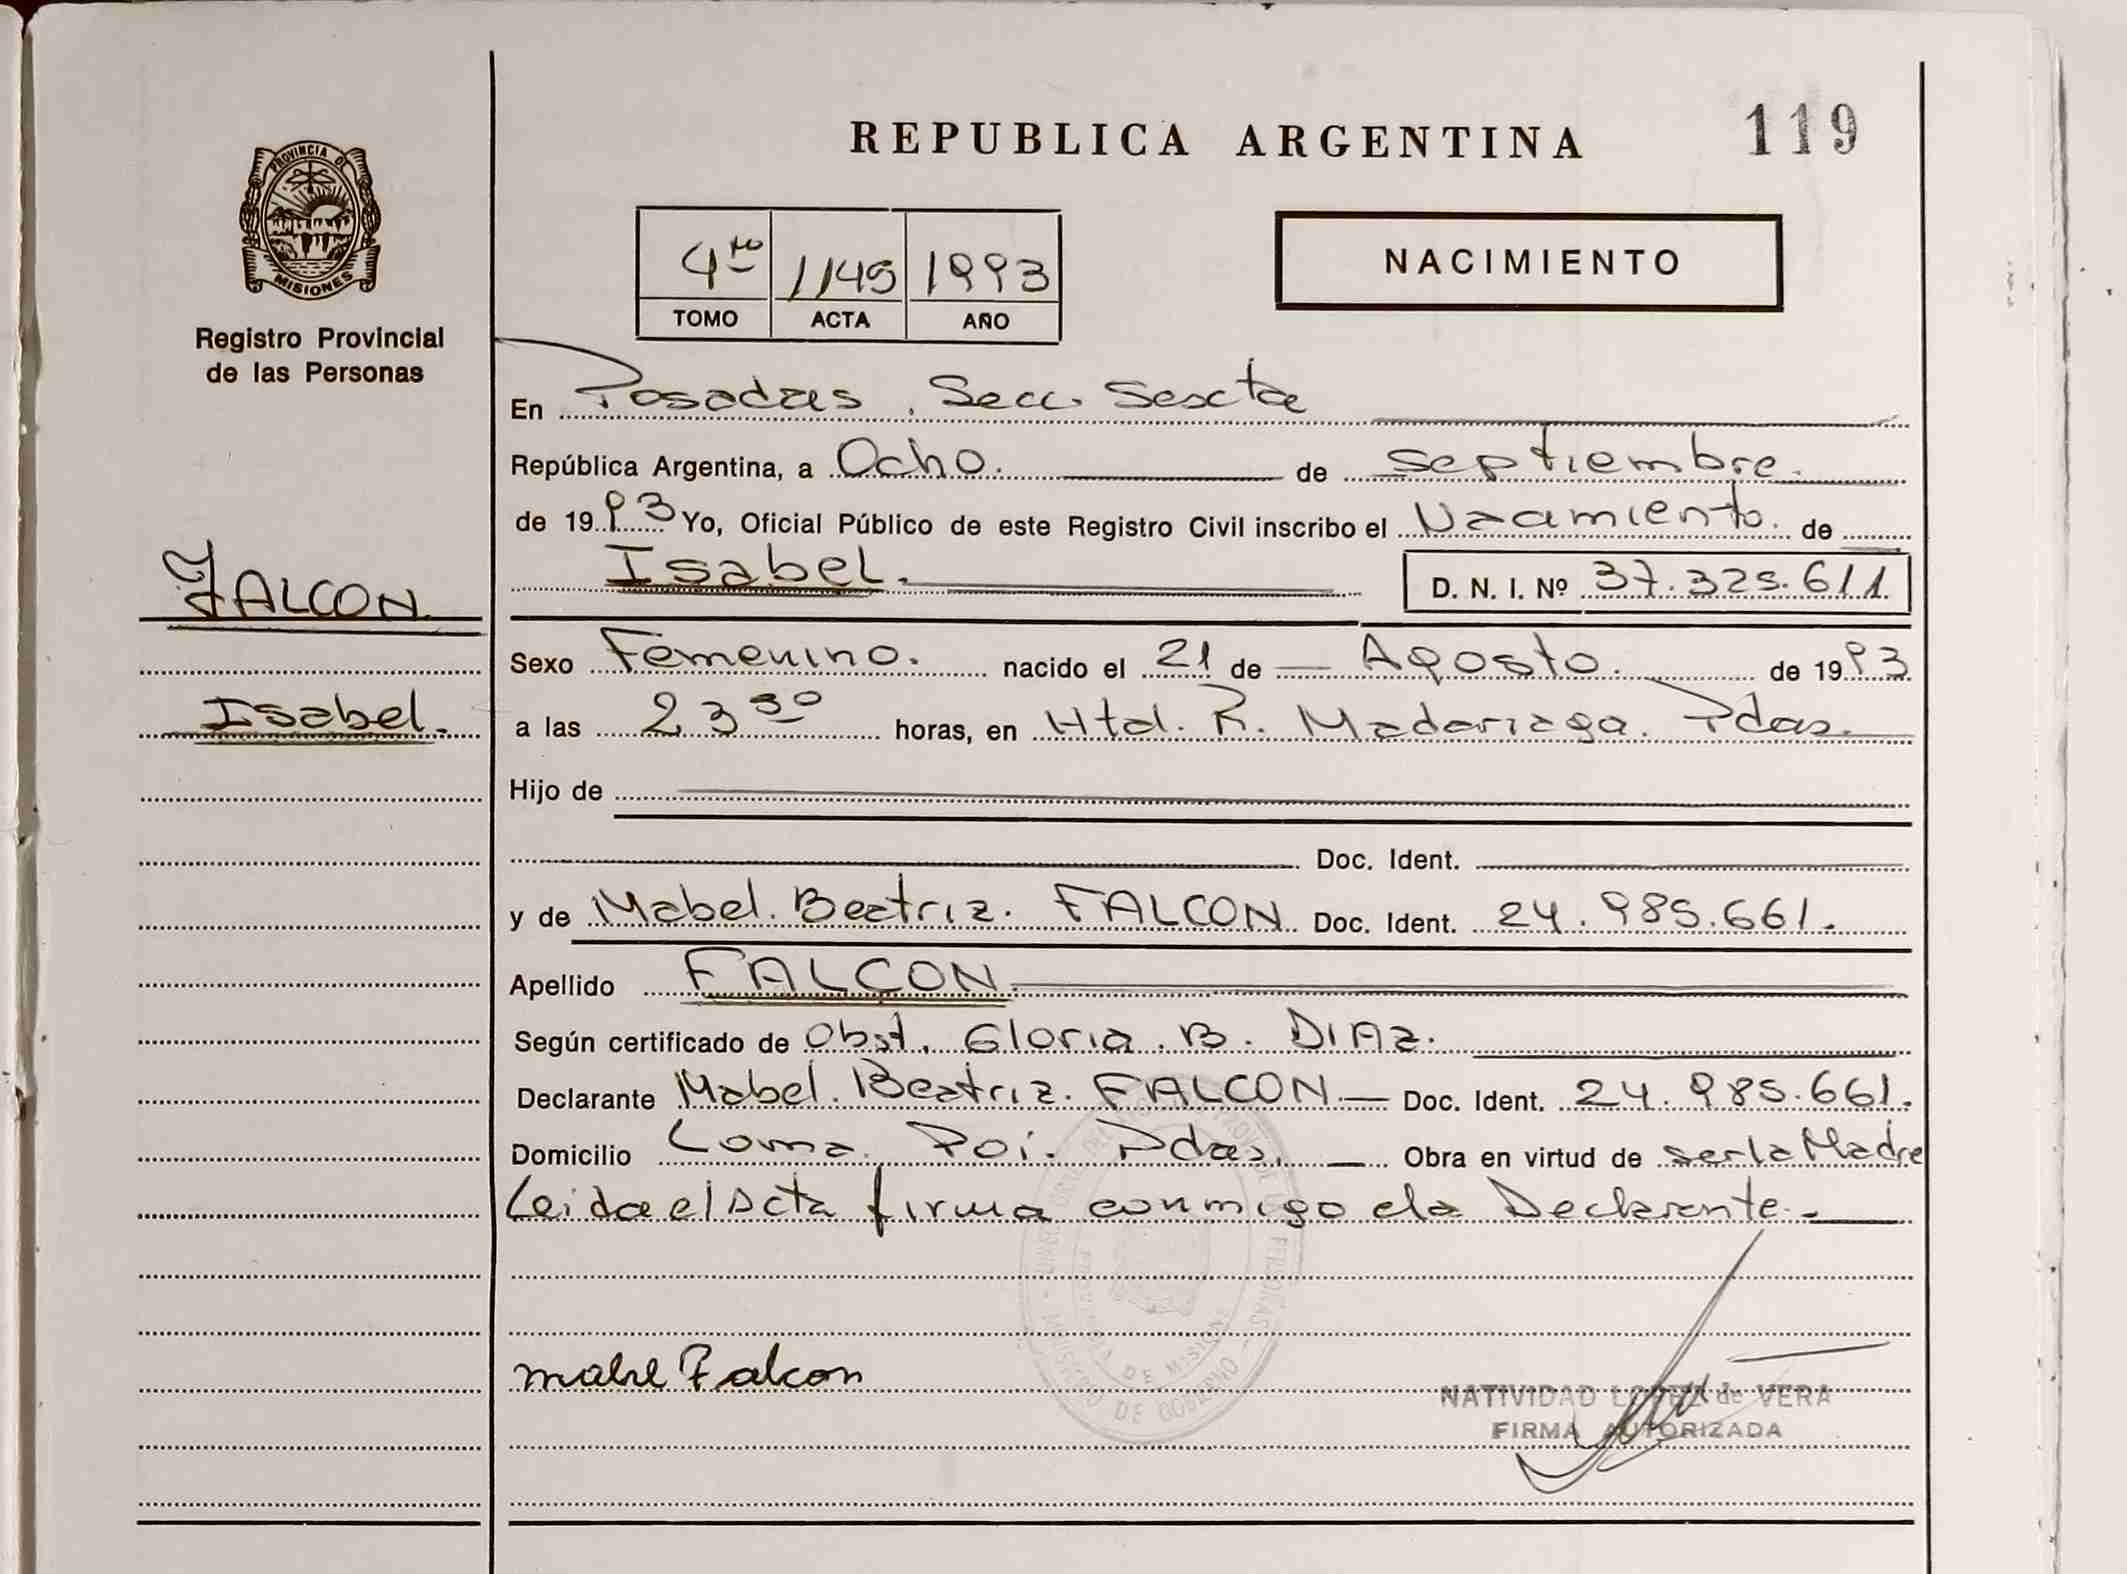 REPUBLICA ARGENTINA
119
PROVINCIA DE
MISIONES
Registro Provincial
de las Personas
4to 1145 1993
TOMO ACTA AÑO
NACIMIENTO
En Posadas, Secc. Sexta
República Argentina, a Ocho. de septiembre.
de 1993 Yo, Oficial Público de este Registro Civil inscribo el Nacimiento. de
Isabel. D. N. I. Nº 37.325.611.
FALCON
Isabel.
Sexo Femenino. nacido el 21 de Agosto. de 1993
a las 23 30 horas, en Htal. R. Madariaga. Pdas.
Hijo de
Doc. Ident.
y de Mabel. Beatriz. FALCON Doc. Ident. 24.985.661.
Apellido FALCON.
Según certificado de Obst. Gloria. B. DIAZ.
Declarante Mabel. Beatriz. FALCON. Doc. Ident. 24.985.661.
Domicilio Loma. Poi. Pdas. Obra en virtud de ser la Madre
Leida el Acta firma conmigo ela Declarante.
PROVINCIA DE MISIONES
MINISTERIO DE GOBIERNO
mabel Falcon
NATIVIDAD LOPEZ de VERA
FIRMA AUTORIZADA